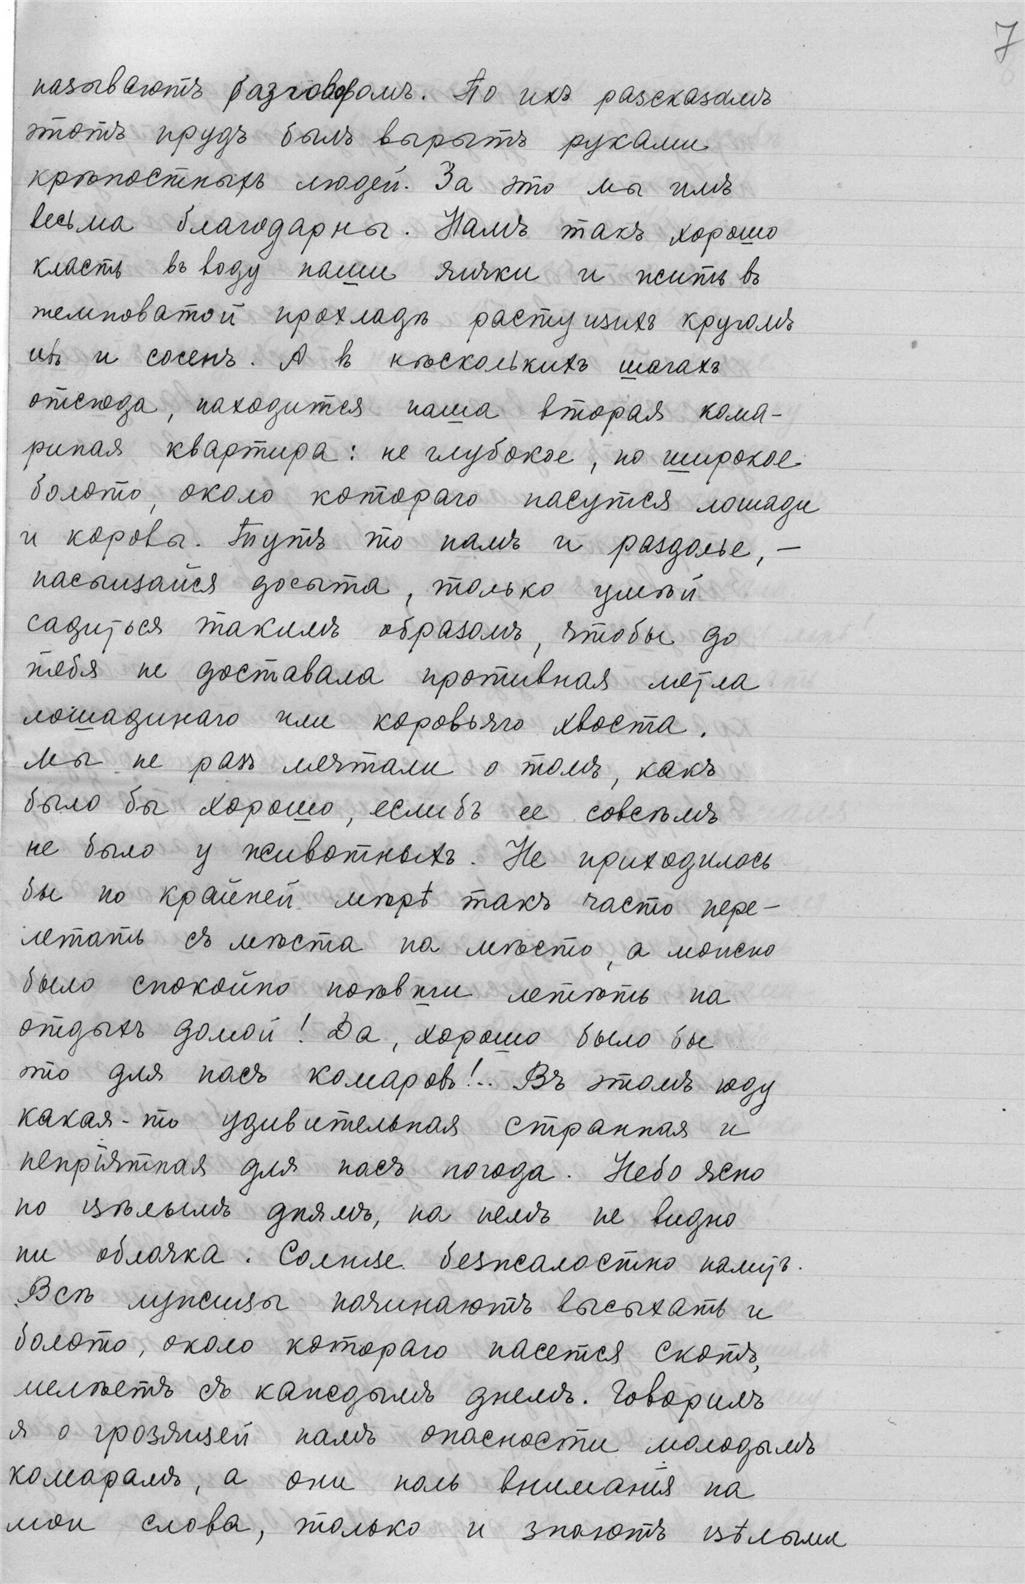 7
называютъ разговоромъ. По ихъ разсказамъ
этотъ прудъ былъ вырытъ руками
крѣпостныхъ людей. За это мы имъ
весьма благодарны. Намъ такъ хорошо
класть въ воду наши яички и жить въ
темноватой прохладѣ растущихъ кругомъ
ивъ и сосенъ. А въ нѣсколькихъ шагахъ
отсюда, находится наша вторая кома-
риная квартира: не глубокое, но широкое
болото, около котораго пасутся лошади
и коровы. Тутъ то намъ и раздолье, —
насыщайся досыта, только умѣй
садиться такимъ образомъ, чтобы до
тебя не доставала противная метла
лошадинаго или коровьяго хвоста.
Мы не разъ мечтали о томъ, какъ
было бы хорошо, еслибъ ее совсѣмъ
не было у животныхъ. Не приходилось
бы по крайней мѣрѣ такъ часто пере-
летать съ мѣста на мѣсто, а можно
было спокойно поѣвши летѣть на
отдыхъ домой! Да, хорошо было бы
это для насъ комаровъ!.. Въ этомъ году
какая-то удивительная странная и
непріятная для насъ погода. Небо ясно
по цѣлымъ днямъ, на немъ не видно
ни облачка. Солнце безжалостно палитъ.
Всѣ лужицы начинаютъ высыхать и
болото, около котораго пасется скотъ,
мелѣетъ съ каждымъ днемъ. Говорилъ
я о грозящей намъ опасности молодымъ
комарамъ, а они ноль вниманія на
мои слова, только и знаютъ цѣлыми